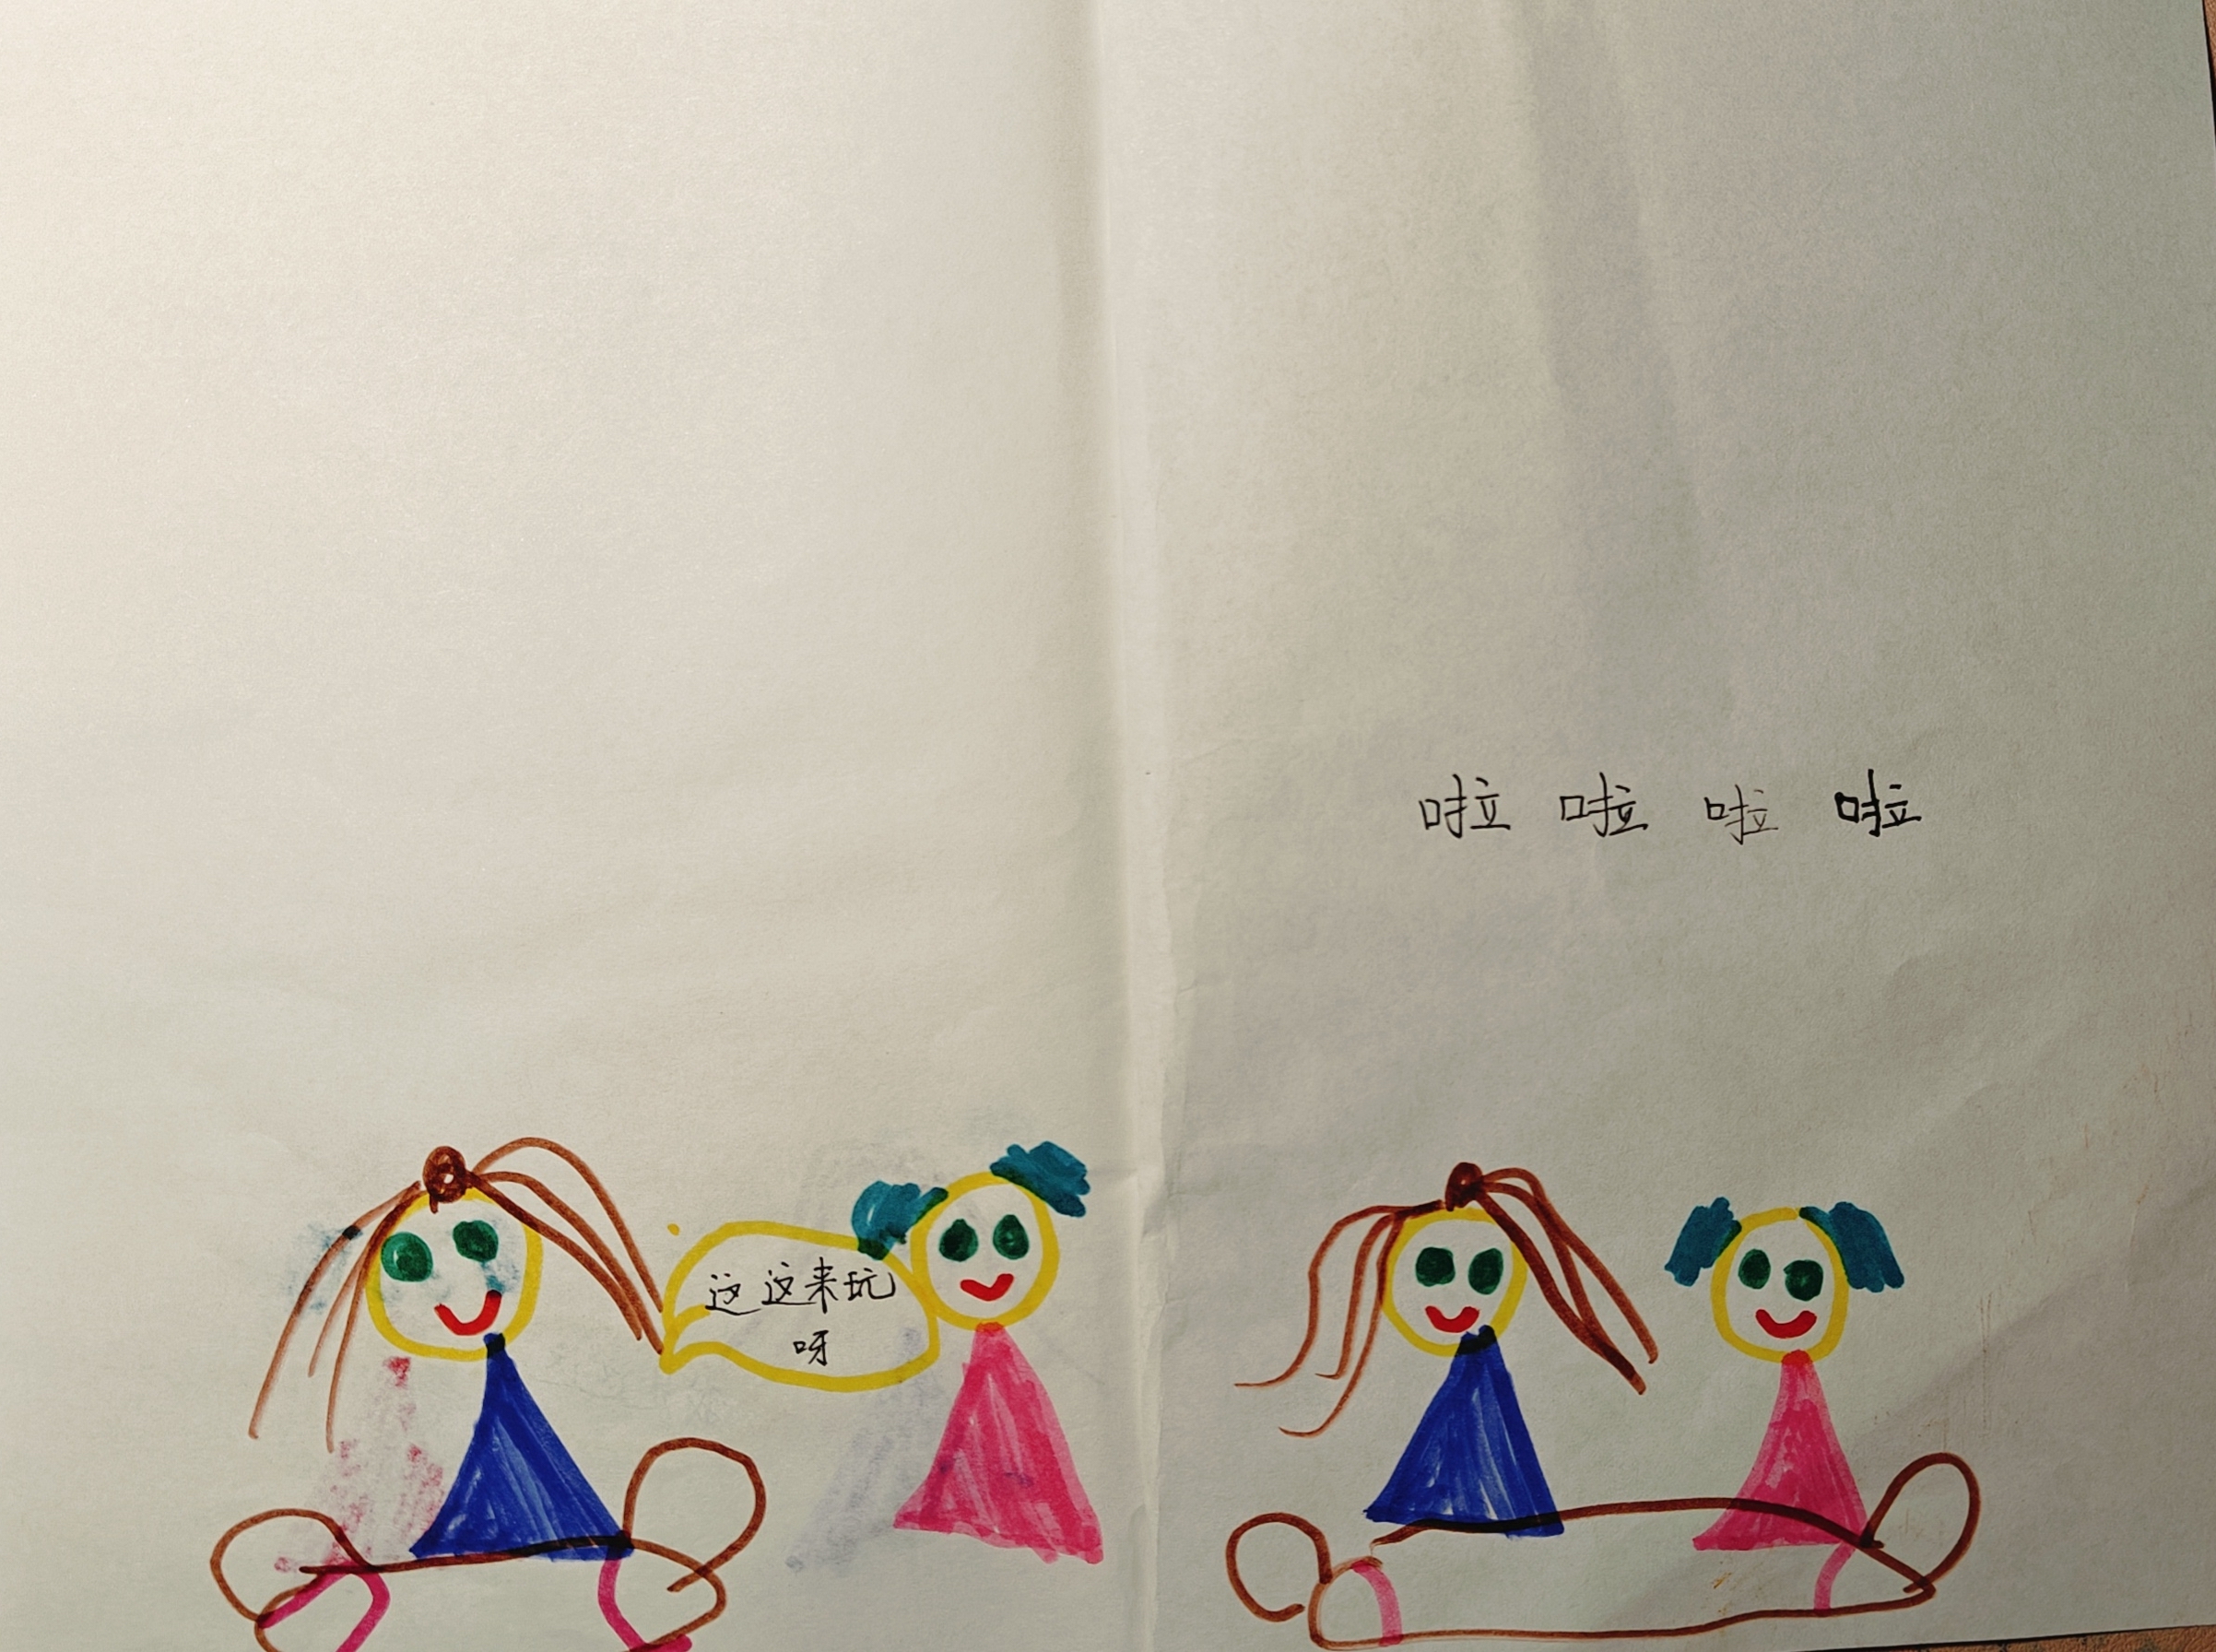 这这来玩
呀
啦 啦 啦 啦